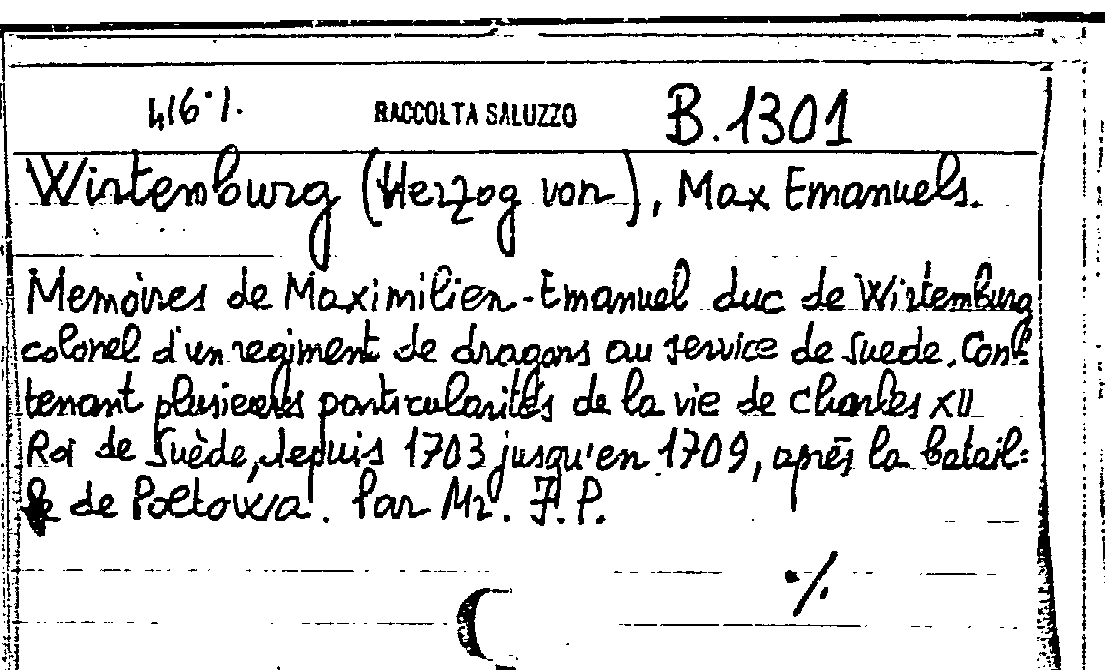 416·1. RACCOLTA SALUZZO B.1301
Wirtemburg (Herzog von), Max Emanuels.
Memoires de Maximilien-Emanuel duc de Wirtemburg
colonel d'un regiment de dragons au service de Suede. Con-
tenant plusieurs particularités de la vie de Charles XII
Roi de Suède, depuis 1703 jusqu'en 1709, après la batail=
le de Poltowa. Par Mr. F. P.
·/.